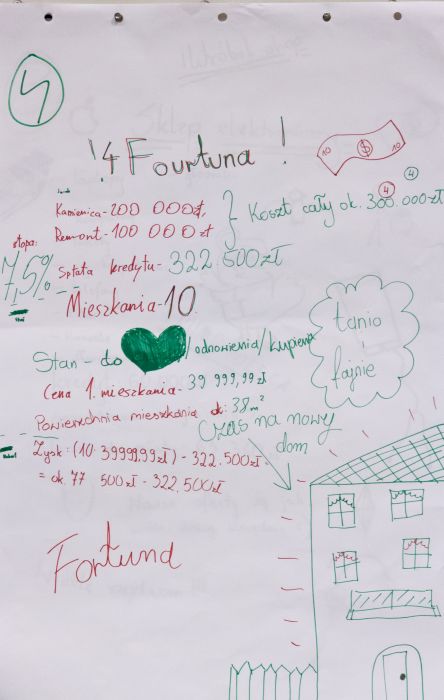 4
'4 Fourtuna !
10 $ 10
Kamienica - 200 000 zł,
Remont - 100 000 zł
} Koszt cały ok. 300.000 zł
4 4
stopa:
7,5%
Spłata kredytu - 322.500 zł
Mieszkania - 10
Stan - do /odnowienia/kupienia
tanio
i
fajnie
Cena 1. mieszkania - 39 999,99 zł
Powierzchnia mieszkania ok: 38 m²
Czas na nowy
dom
Zysk: (10· 39999.99 zł) - 322.500 zł
= ok. 77 500 zł - 322.500 zł
Fortuna